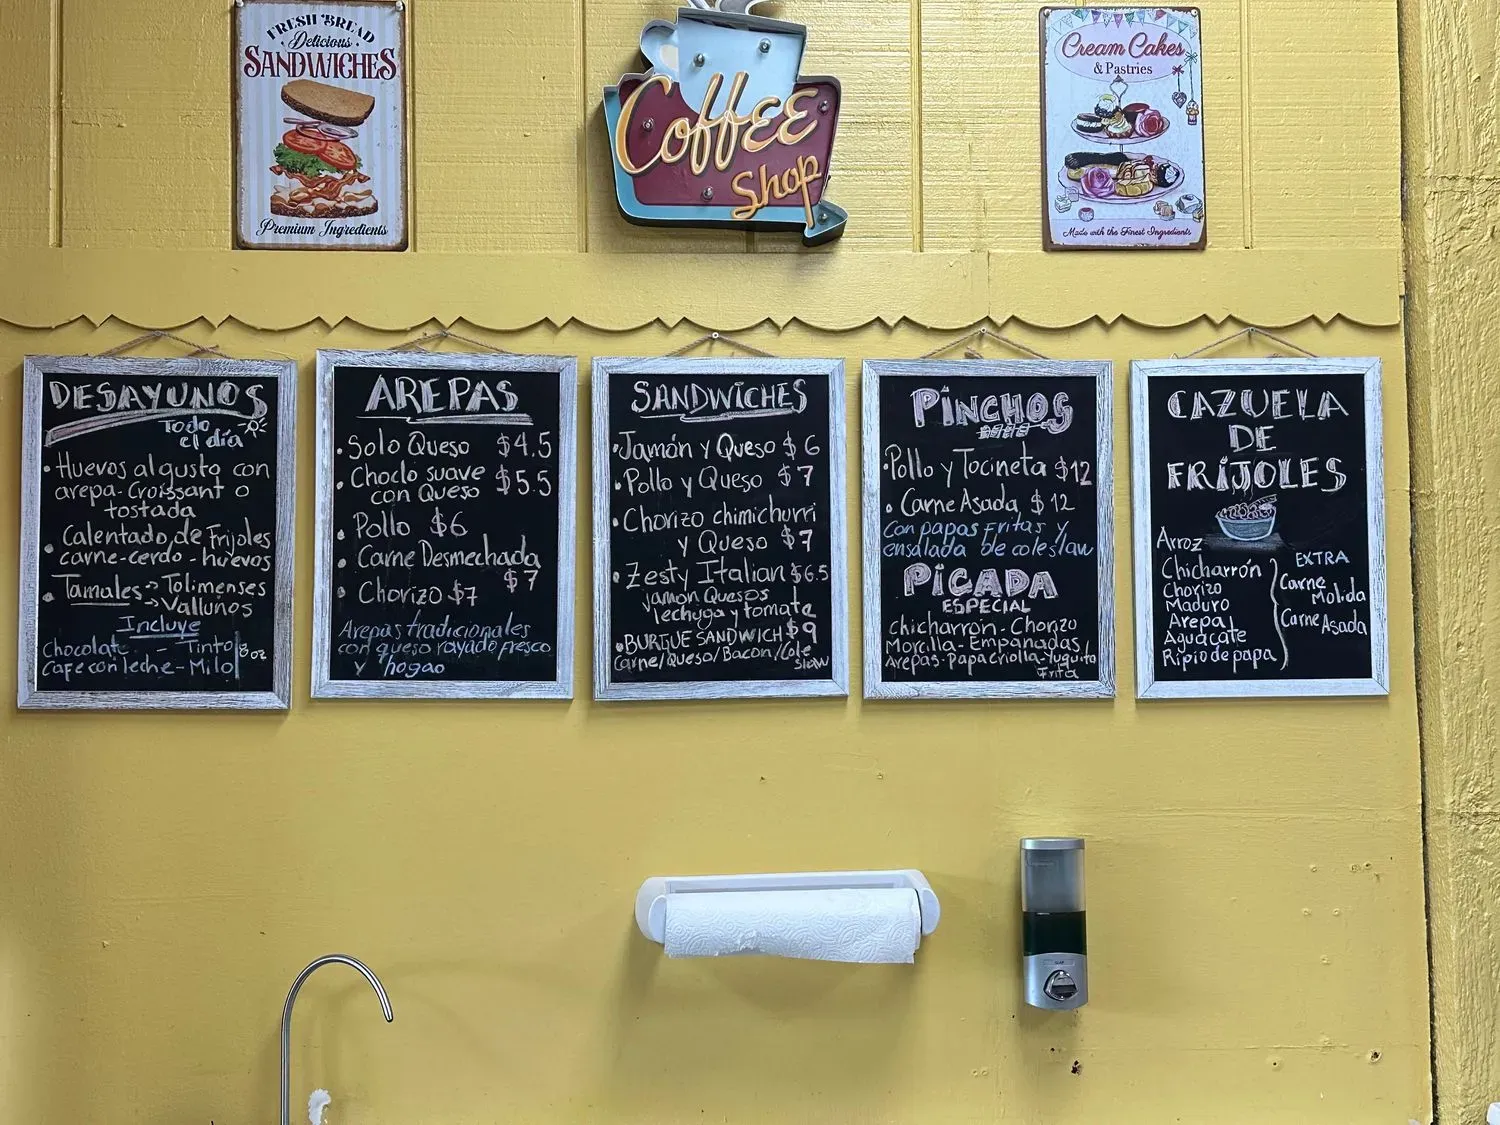 FRESH BREAD
Delicious
SANDWICHES
Premium Ingredients
Coffee
Shop
Cream Cakes
& Pastries
Made with the Finest Ingredients
DESAYUNOS
Todo
el día
• Huevos al gusto con
arepa-Croissant o
tostada
• Calentado de Frijoles
carne-cerdo-huevos
• Tamales → Tolimenses
→ Vallunos
Incluye
Chocolate - Tinto
Cafe con leche - Milo 8oz
AREPAS
• Solo Queso $4.5
• Choclo suave
con Queso $5.5
• Pollo $6
• Carne Desmechada
$7
• Chorizo $7
Arepas tradicionales
con queso rayado fresco
y hogao
SANDWICHES
• Jamón y Queso $6
• Pollo y Queso $7
• Chorizo chimichurri
y Queso $7
• Zesty Italian $6.5
jamon Quesos
lechuga y tomate
• BURGUE SANDWICH $9
Carne/Queso/Bacon/Cole
slaw
PINCHOS
• Pollo y Tocineta $12
• Carne Asada $12
con papas Fritas y
ensalada de coleslaw
PICADA
ESPECIAL
Chicharron - Chorizo
Morcilla - Empanadas
Arepas - Papa criolla - Yuquita
Frita
CAZUELA
DE
FRIJOLES
Arroz
Chicharrón
Chorizo
Maduro
Arepa
Aguacate
Ripio de papa
EXTRA
Carne
Molida
Carne Asada